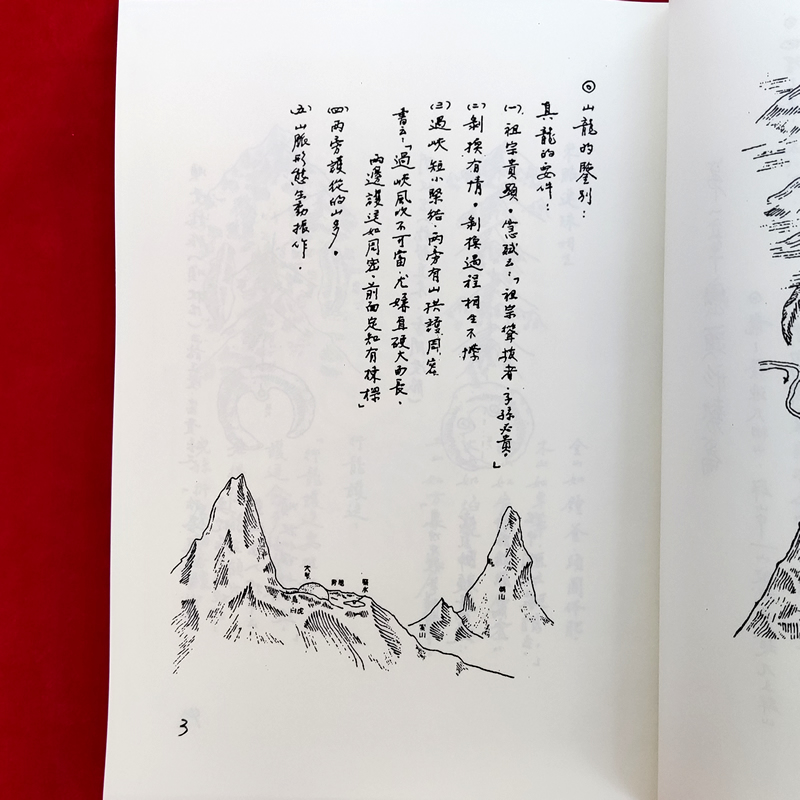 ◎山龍的鑒別：
真龍的要件：
(一)祖宗貴顯。雪心賦云：「祖宗聳拔者，子孫必貴。」
(二)剝換有情。剝換過程相生不悖
(三)過峽短小緊結，兩旁有山拱護周密
書云：「過峽風吹不可當，尤嫌直硬大而長，
兩邊護送如周密，前面定知有棟樑」
(四)兩旁護從的山多。
(五)山脈形態生動振作。
穴星
明堂
虎
案山
朝山
3